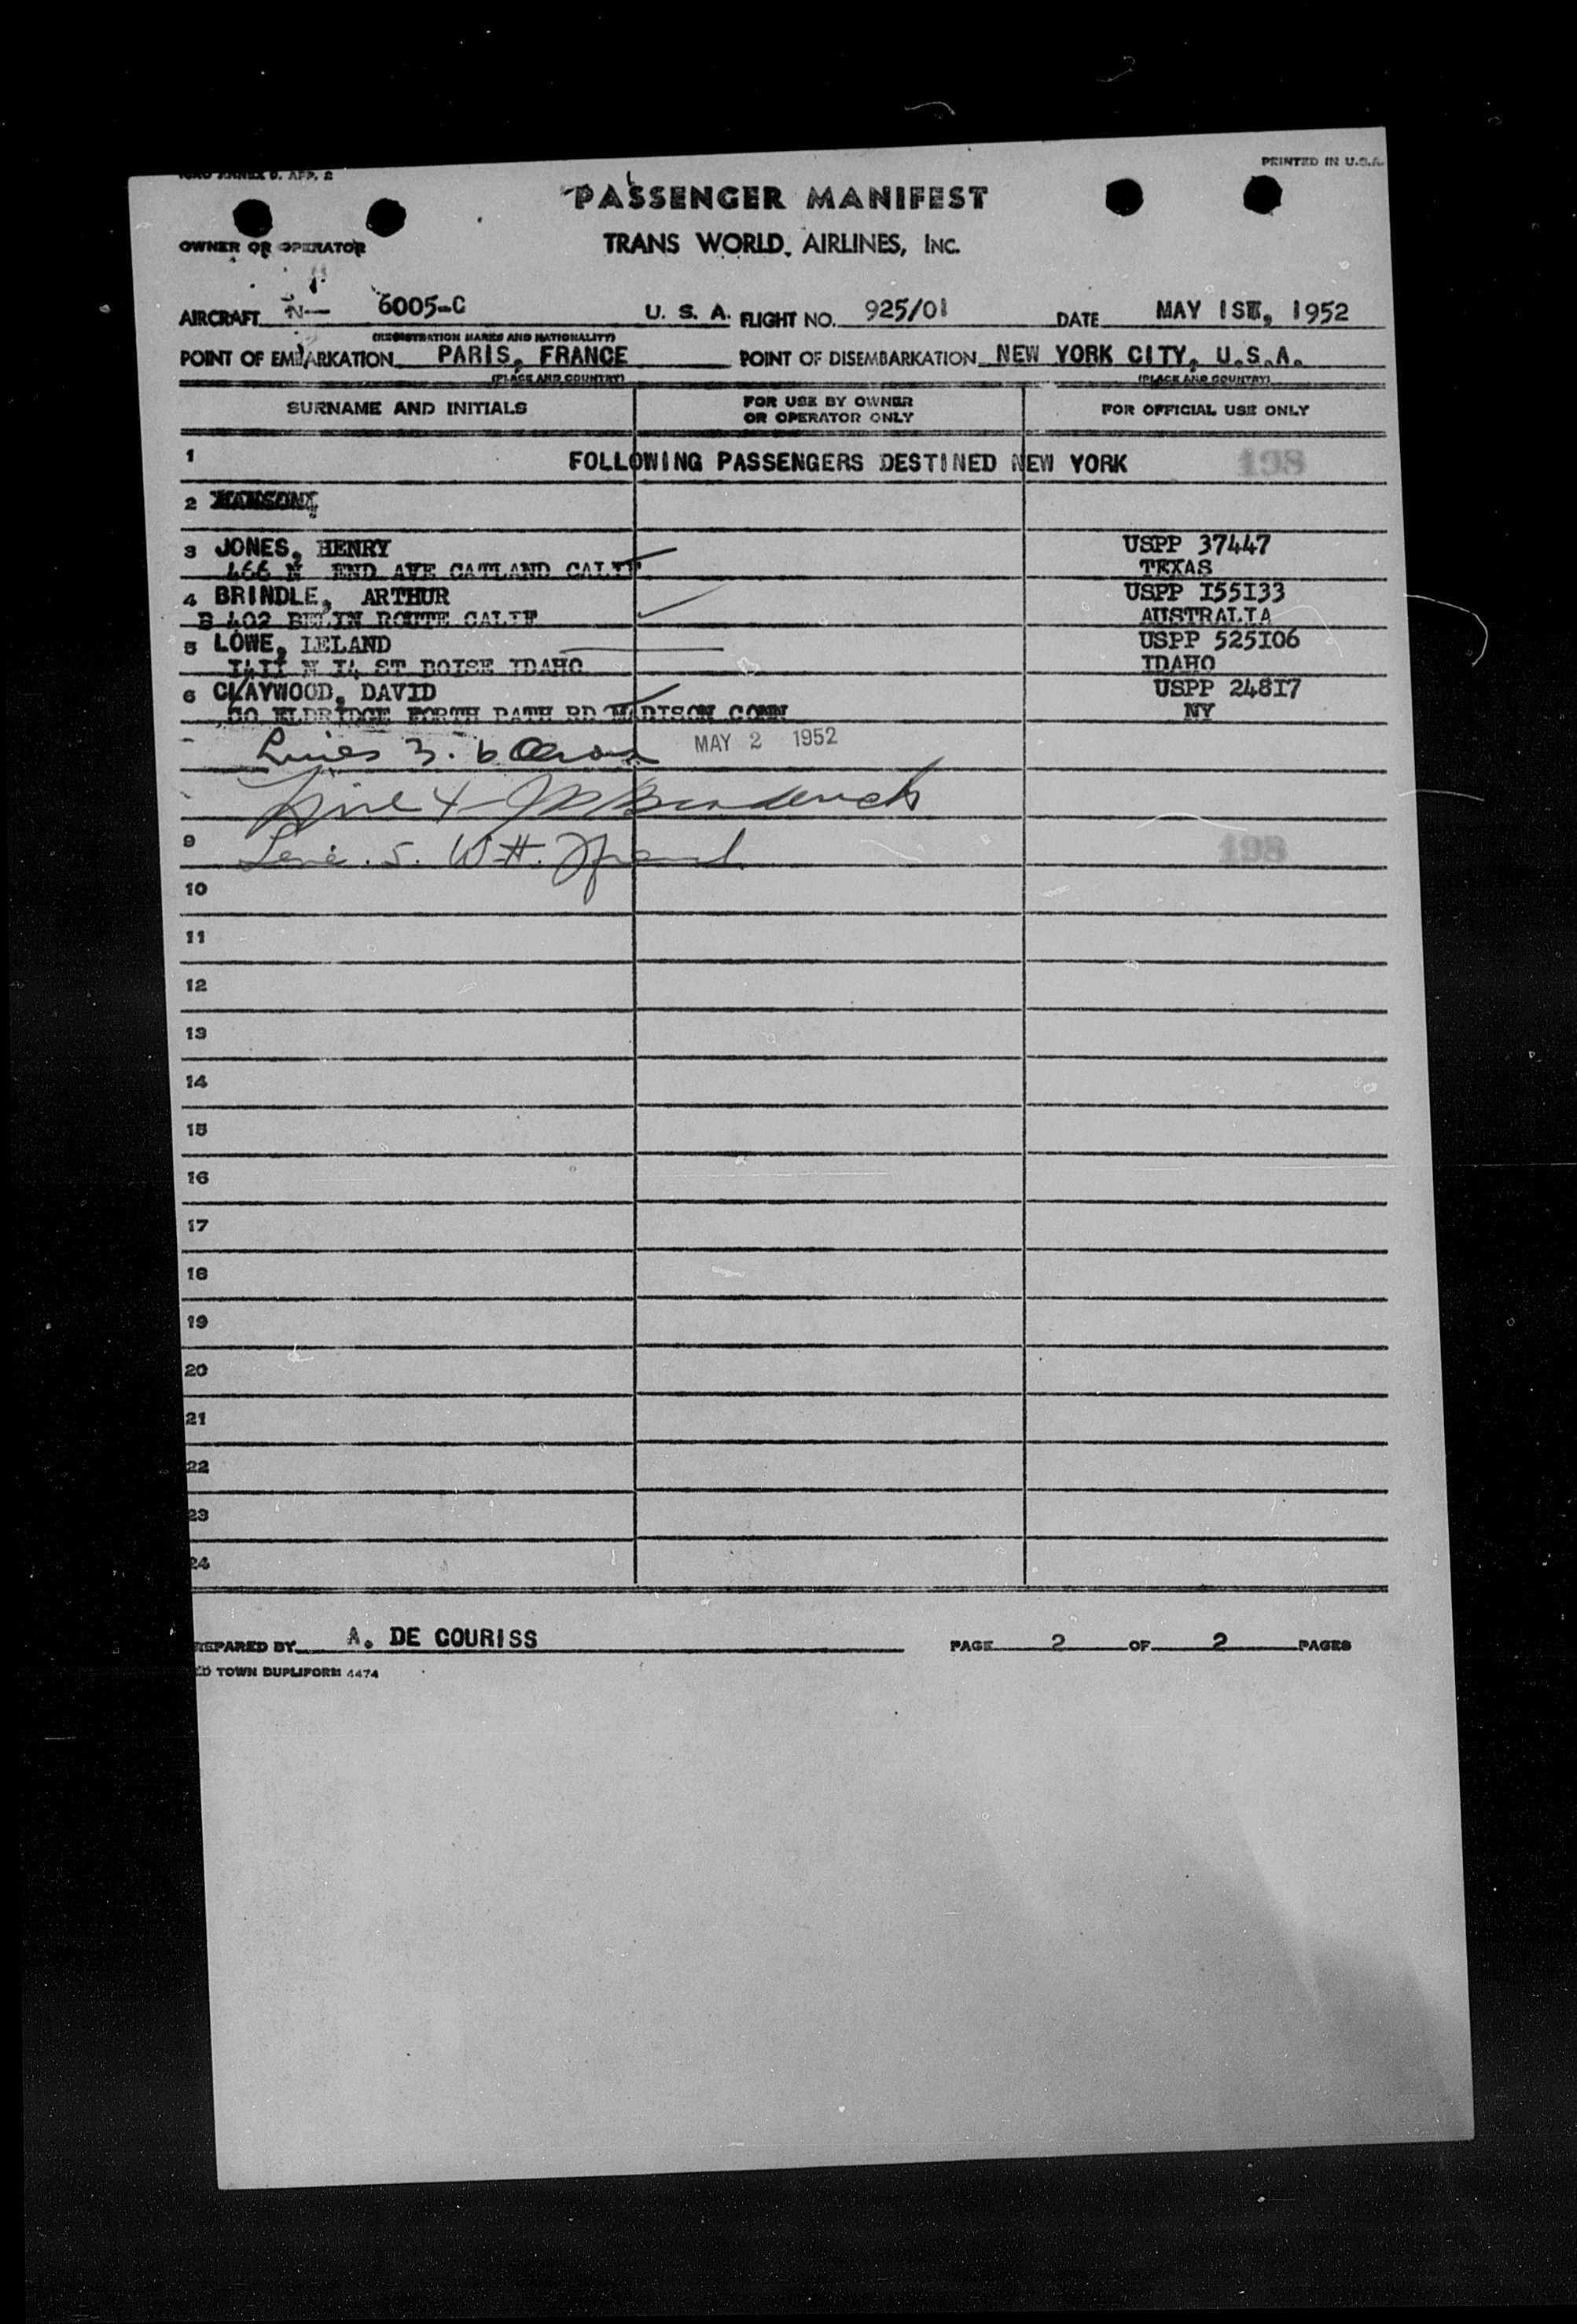 ICAO ANNEX 9. APP. 2
PRINTED IN U.S.A.
PASSENGER MANIFEST
OWNER OR OPERATOR
TRANS WORLD AIRLINES, INC.
AIRCRAFT N— 6005-C U. S. A. FLIGHT NO. 925/01 DATE MAY 1ST, 1952
(REGISTRATION MARKS AND NATIONALITY)
POINT OF EMBARKATION PARIS, FRANCE POINT OF DISEMBARKATION NEW YORK CITY, U.S.A.
(PLACE AND COUNTRY) (PLACE AND COUNTRY)
SURNAME AND INITIALS FOR USE BY OWNER OR OPERATOR ONLY FOR OFFICIAL USE ONLY
1 FOLLOWING PASSENGERS DESTINED NEW YORK 198
2
3 JONES, HENRY USPP 37447
466 N END AVE OATLAND CALIF TEXAS
4 BRINDLE, ARTHUR USPP I55I33
B 402 BELIN ROUTE CALIF AUSTRALIA
5 LOWE, LELAND USPP 525I06
I4II N I4 ST BOISE IDAHO IDAHO
6 CLAYWOOD, DAVID USPP 248I7
ELDRIDGE RD MADISON CONN NY
Lines 3. 6 MAY 2 1952
Line 4
9 Line 5. W.H. 198
10
11
12
13
14
15
16
17
18
19
20
21
22
23
24
REPARED BY A. DE COURISS PAGE 2 OF 2 PAGES
ED TOWN DUPLIFORM 4474